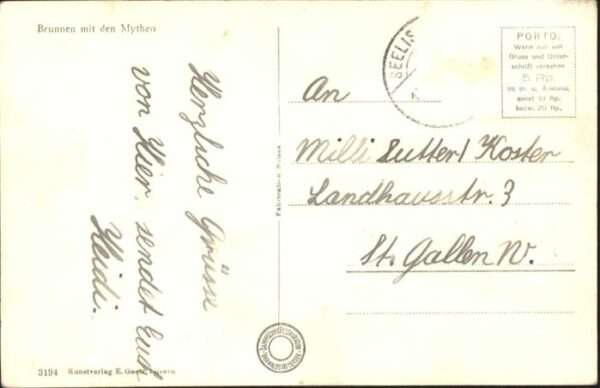 Brunnen mit den Mythen
Herzliche Grüsse
von Hier, sendet Euch
Heidi.
SEELIS
PORTO:
Wenn nur mit
Gruss und Unter-
schrift versehen
5 Rp.
sonst 10 Rp.
20 Rp.
An
Milli Sutter/ Koster
Landhausstr. 3
St. Gallen W.
3194 Kunstverlag E.